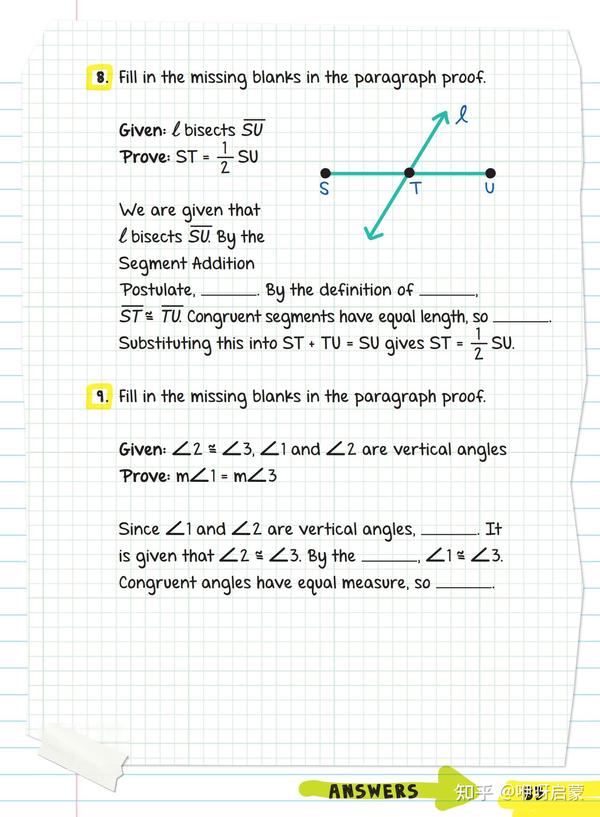 8. Fill in the missing blanks in the paragraph proof.
Given: ℓ bisects S̅U̅
Prove: ST = 1/2 SU
ℓ
S T U
We are given that
ℓ bisects S̅U̅. By the
Segment Addition
Postulate, ______. By the definition of ______,
S̅T̅ ≅ T̅U̅. Congruent segments have equal length, so ______.
Substituting this into ST + TU = SU gives ST = 1/2 SU.
9. Fill in the missing blanks in the paragraph proof.
Given: ∠2 ≅ ∠3, ∠1 and ∠2 are vertical angles
Prove: m∠1 = m∠3
Since ∠1 and ∠2 are vertical angles, ______. It
is given that ∠2 ≅ ∠3. By the ______, ∠1 ≅ ∠3.
Congruent angles have equal measure, so ______.
ANSWERS
知乎